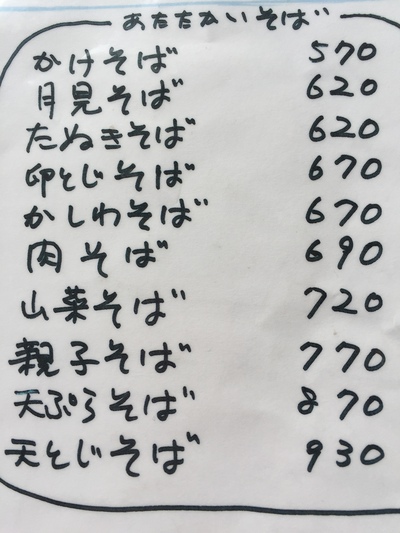 あたたかいそば
かけそば 570
月見そば 620
たぬきそば 620
卵とじそば 670
かしわそば 670
肉そば 690
山菜そば 720
親子そば 770
天ぷらそば 870
天とじそば 930